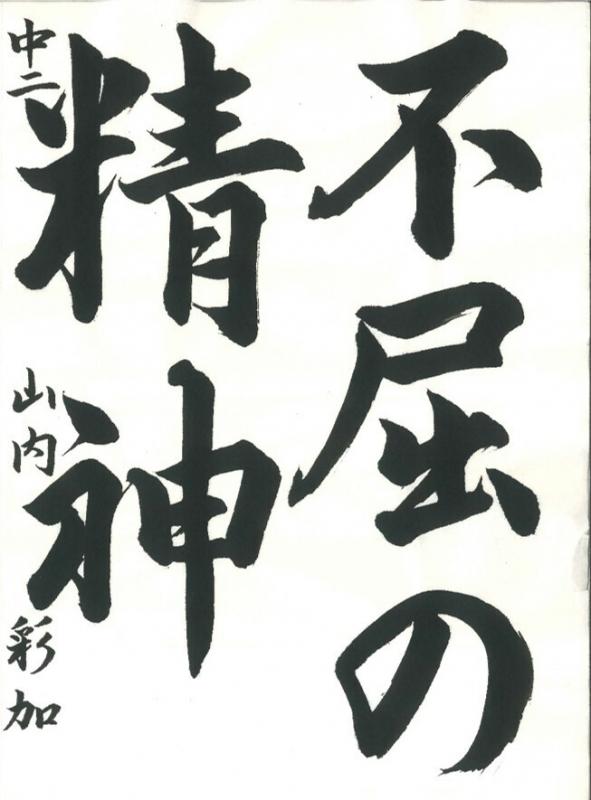 不屈の
精神
中二 山内 彩加